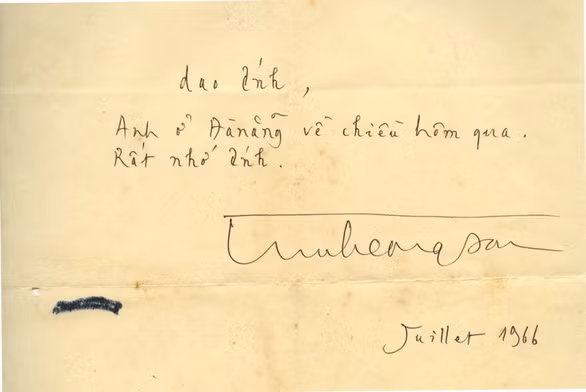 dao ánh,
Anh ở Đànẵng về chiều hôm qua.
Rất nhớ ánh.
trinhcongson
Juillet 1966